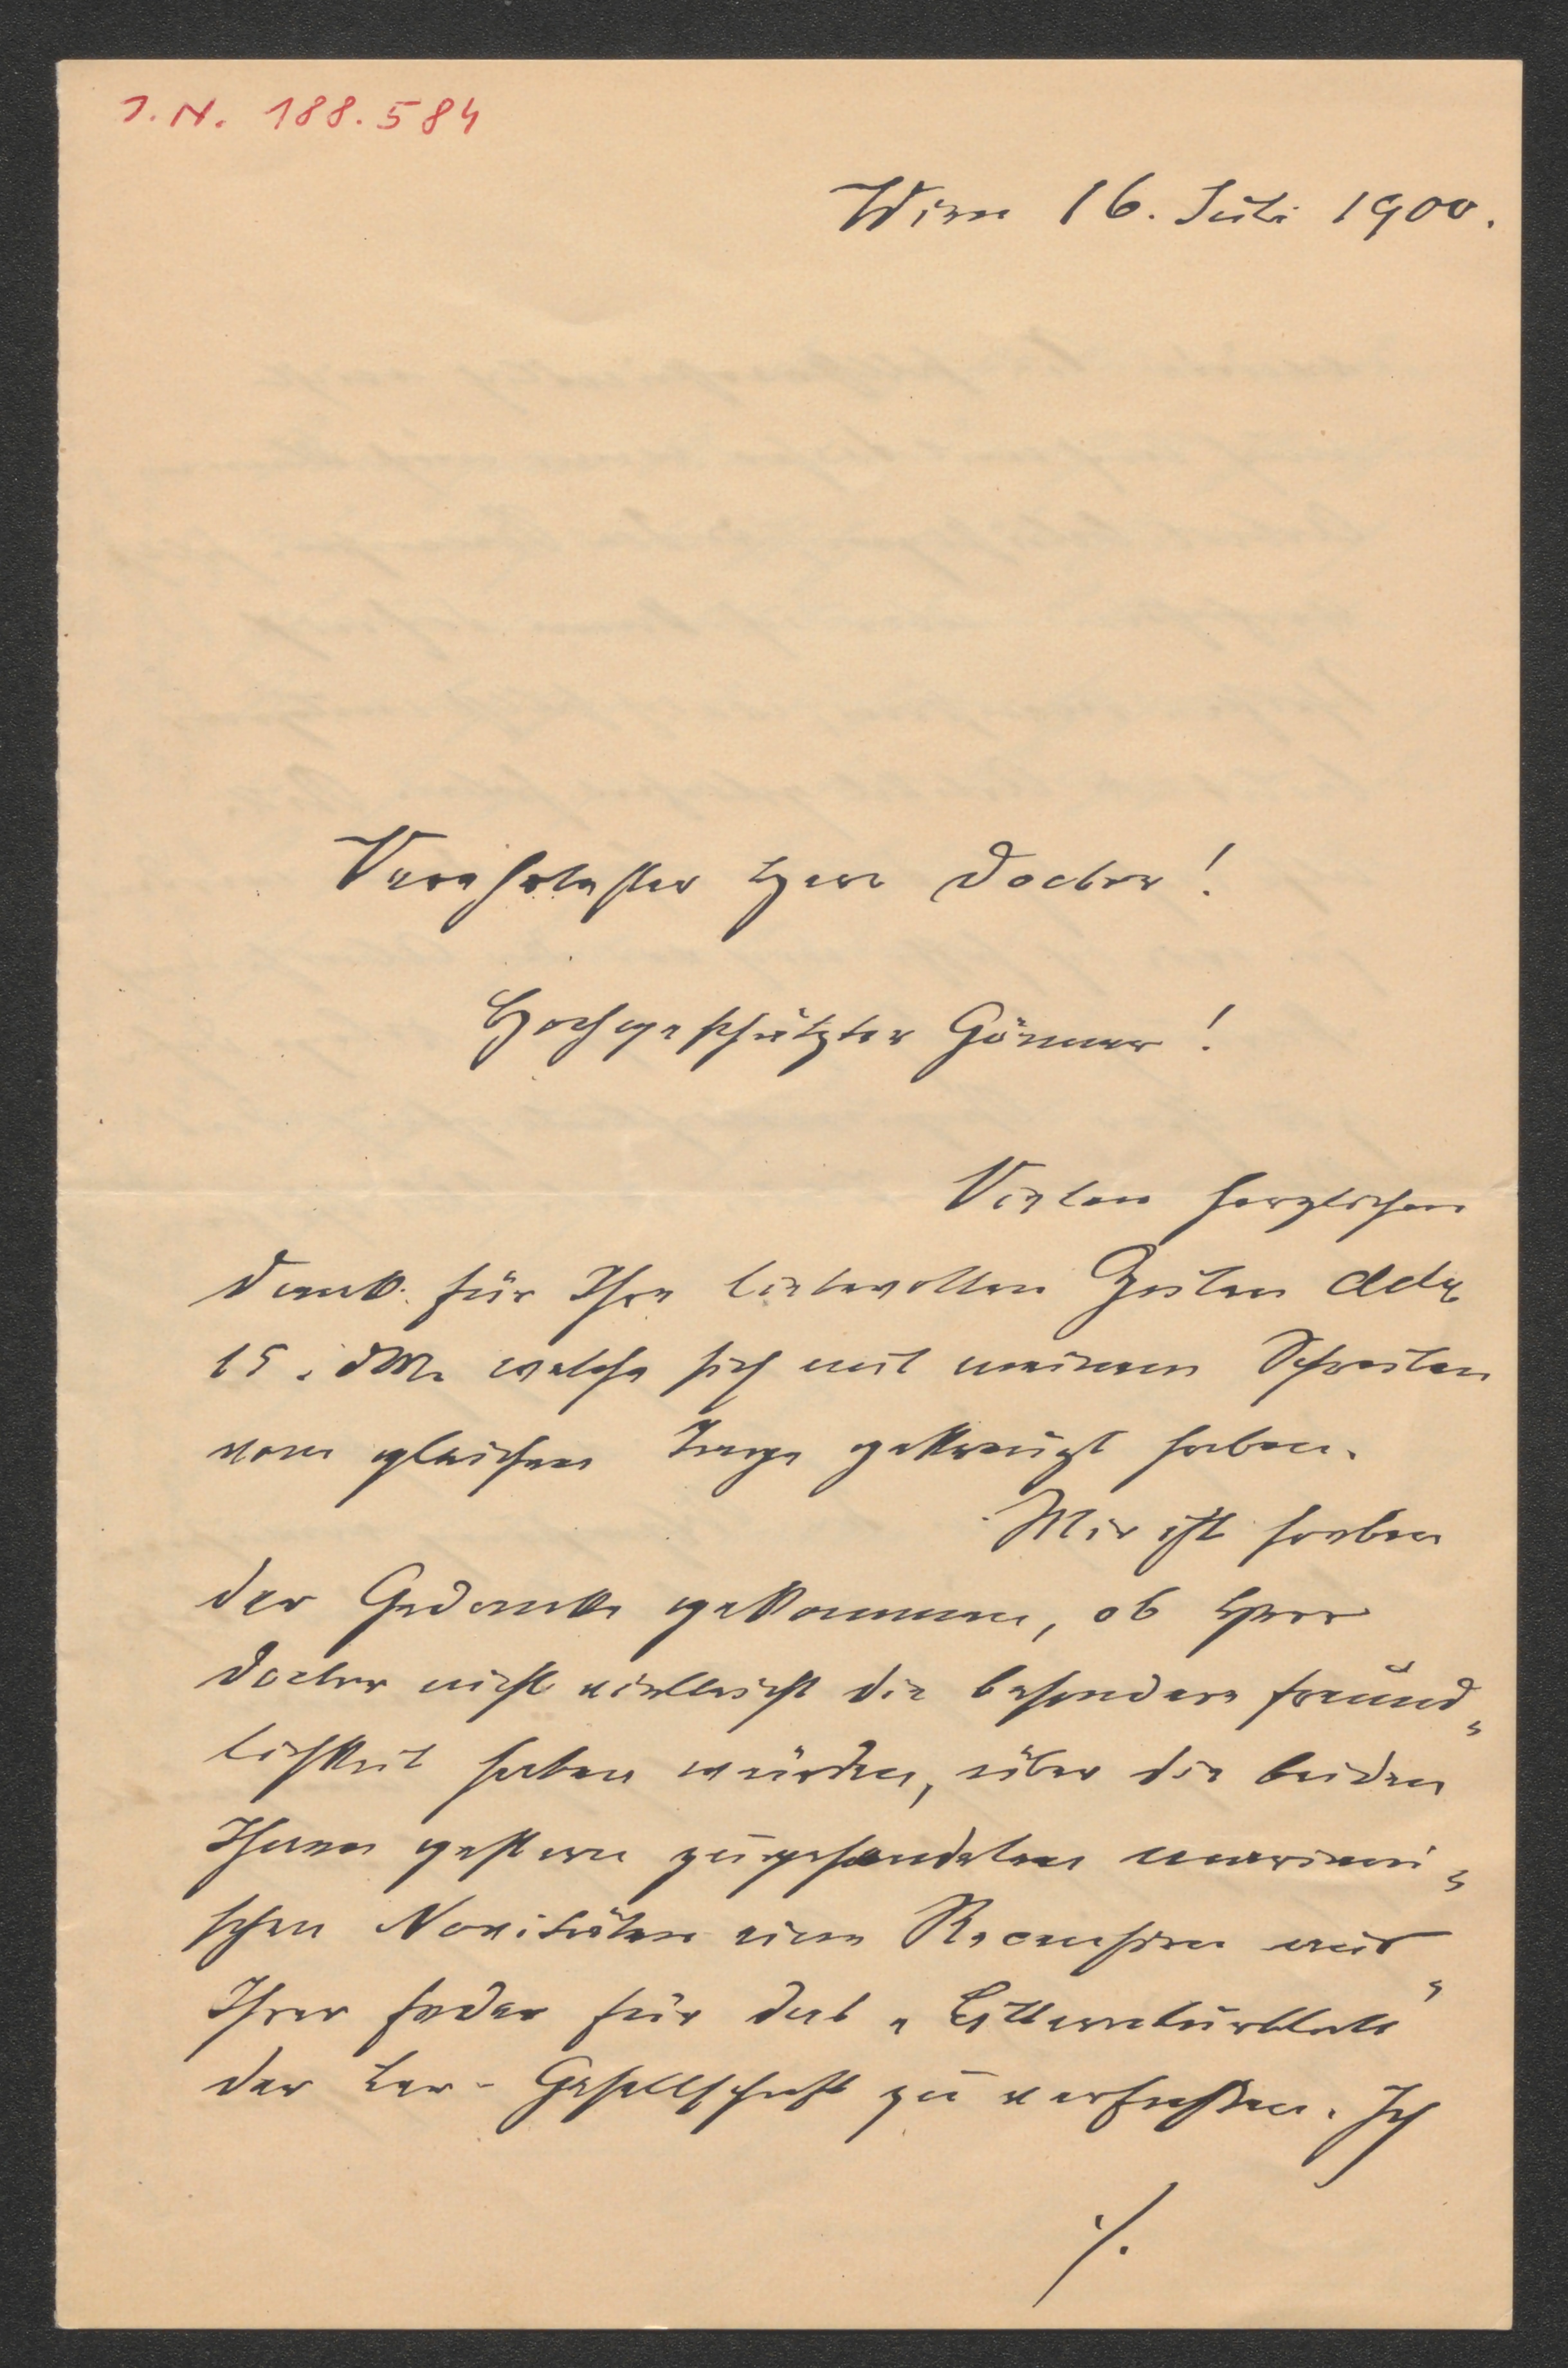 I.N. 188.584
Wien 16. Juli 1900.
Verehrtester Herr Doctor!
Hochgeschätzter Gönner!
Vielen herzlichen
Dank für Ihre liebevollen Zeilen ddo
15. d. M. welche sich mit meinem Schreiben
vom gleichen Tage gekreuzt haben.
Mir ist soeben
der Gedanke gekommen, ob Herr
Doctor nicht vielleicht die besondere Freund„
lichkeit haben würden, über die beiden
Ihnen gestern zugesendeten
schen Novitäten eine Recension aus
Ihrer Feder für das „Litteraturblatt"
der Leo-Gesellschaft zu verfassen. Ich
./.